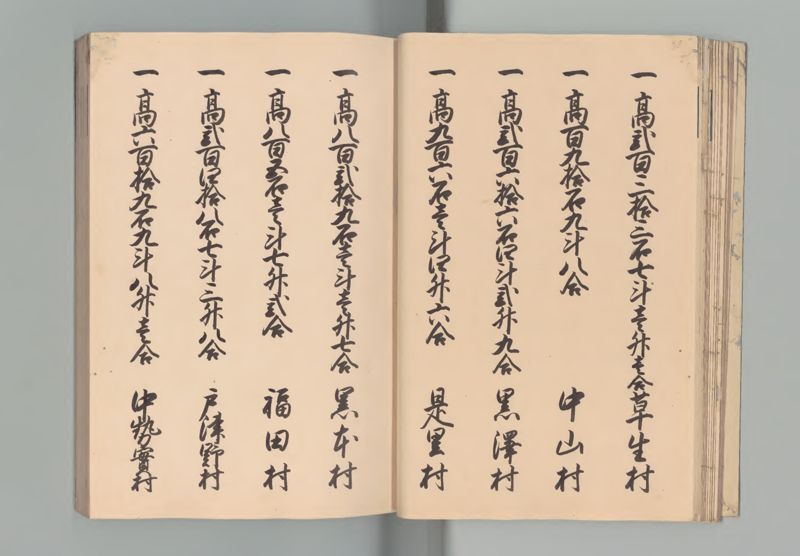 一高弐百三拾三石七斗壱升壱合草生村
一高百九拾石九斗八合 中山村
一高弐百六拾六石四斗弐升九合 黒澤村
一高九百六石壱斗四升六合 是里村
一高八百弐拾九石壱斗壱升七合 黒本村
一高八百五石壱斗七升弐合 福田村
一高弐百四拾八石七斗三升八合 戸津野村
一高六百拾九石九斗八升壱合 中勢實村